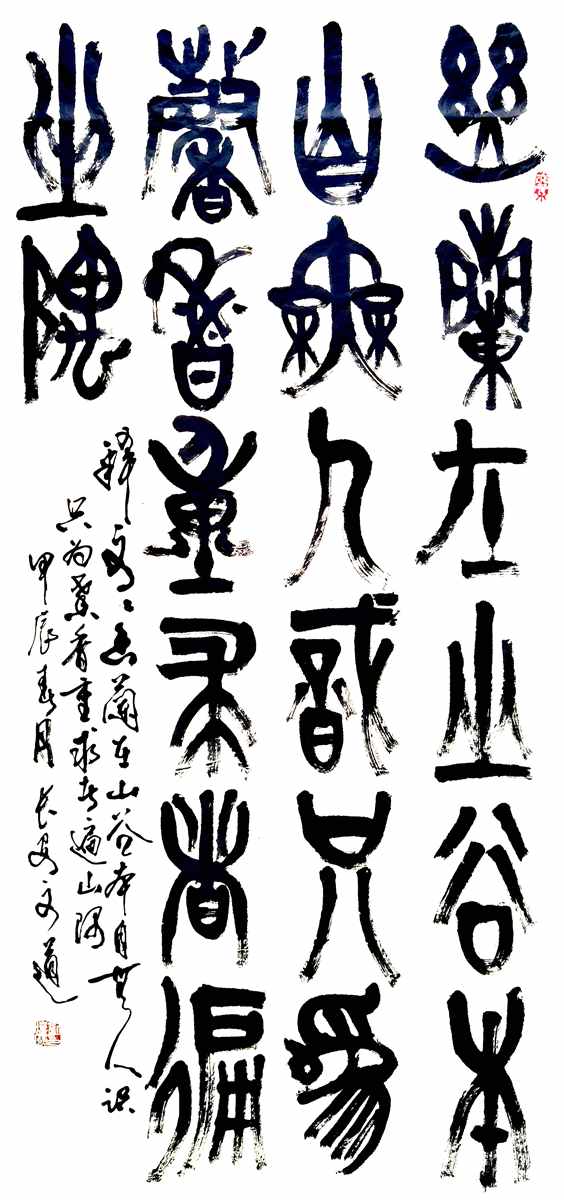 幽蘭在山谷本
自無人識只為
馨香重求者徧
山隅
释文：幽蘭在山谷本自無人识
只为馨香重求者遍山隅
甲辰春月长安文道